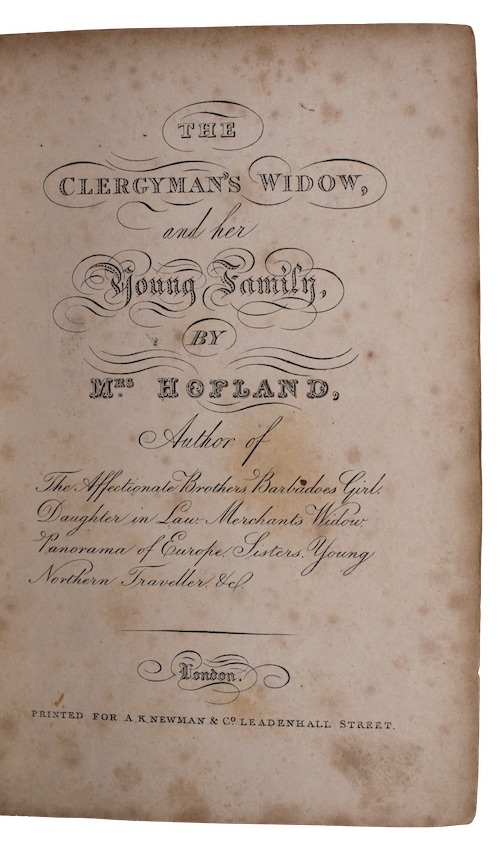 THE
CLERGYMAN'S WIDOW,
and her
Young Family,
BY
MRS HOFLAND,
Author of
The Affectionate Brothers, Barbadoes Girl,
Daughter in Law, Merchants Widow,
Panorama of Europe, Sisters, Young
Northern Traveller, &c.
London.
PRINTED FOR A. K. NEWMAN & Co. LEADENHALL STREET.